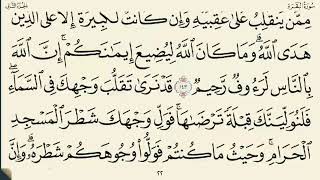 سورة البقرة
الجزء الثاني
مِمَّن يَنقَلِبُ عَلَىٰ عَقِبَيْهِ وَإِن كَانَتْ لَكَبِيرَةً إِلَّا عَلَى ٱلَّذِينَ
هَدَى ٱللَّهُ وَمَا كَانَ ٱللَّهُ لِيُضِيعَ إِيمَٰنَكُمْ إِنَّ ٱللَّهَ
بِٱلنَّاسِ لَرَءُوفٌ رَّحِيمٌ ١٤٣ قَدْ نَرَىٰ تَقَلُّبَ وَجْهِكَ فِى ٱلسَّمَآءِ
فَلَنُوَلِّيَنَّكَ قِبْلَةً تَرْضَىٰهَا فَوَلِّ وَجْهَكَ شَطْرَ ٱلْمَسْجِدِ
ٱلْحَرَامِ وَحَيْثُ مَا كُنتُمْ فَوَلُّوا۟ وُجُوهَكُمْ شَطْرَهُۥ وَإِنَّ
٢٢